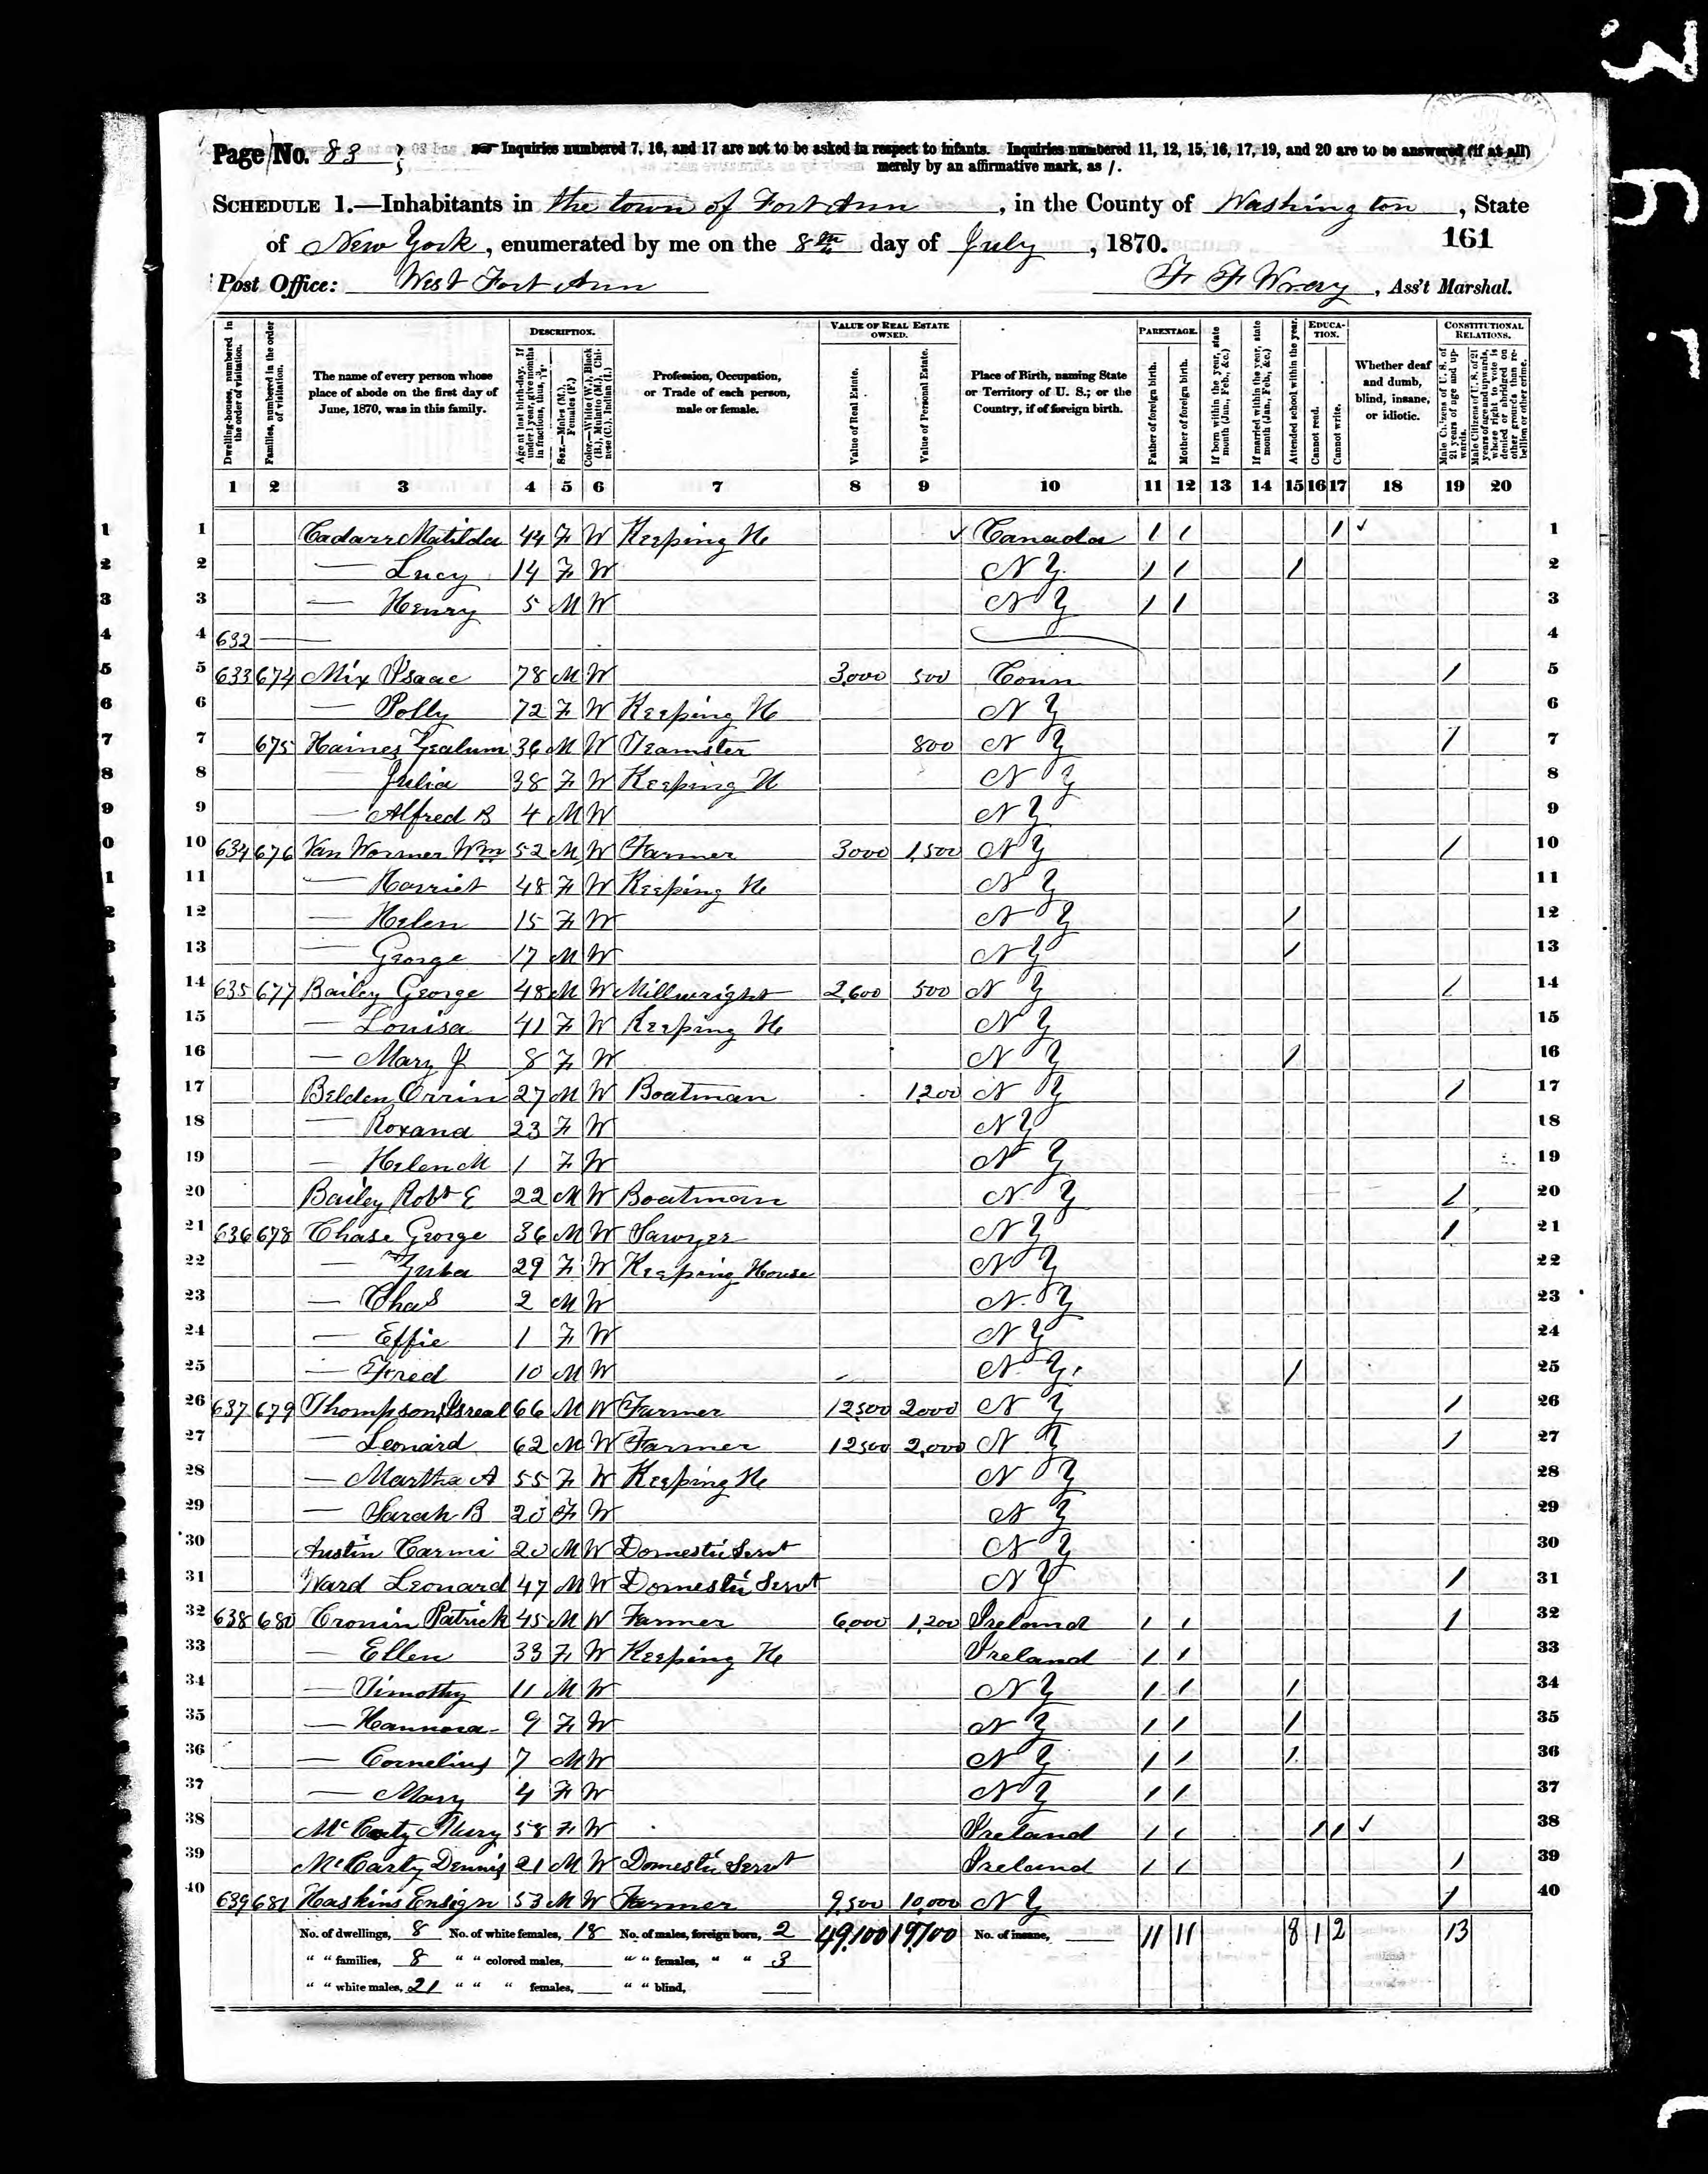 Page No. 83
Inquiries numbered 7, 16, and 17 are not to be asked in respect to infants. Inquiries numbered 11, 12, 15, 16, 17, 19, and 20 are to be answered (if at all)
merely by an affirmative mark, as /.
SCHEDULE 1.—Inhabitants in the town of Fort Ann, in the County of Washington, State
of New York, enumerated by me on the 8th day of July, 1870.
161
Post Office: West Fort Ann
Ass't Marshal.
Dwelling-houses, numbered in the order of visitation.
Families, numbered in the order of visitation.
The name of every person whose place of abode on the first day of June, 1870, was in this family.
DESCRIPTION.
Age at last birth-day. If under 1 year, give months in fractions, thus, 3/12.
Sex.—Males (M.), Females (F.)
Color.—White (W.), Black (B.), Mulatto (M.), Chinese (C.), Indian (I.)
Profession, Occupation, or Trade of each person, male or female.
VALUE OF REAL ESTATE OWNED.
Value of Real Estate.
Value of Personal Estate.
Place of Birth, naming State or Territory of U. S.; or the Country, if of foreign birth.
PARENTAGE.
Father of foreign birth.
Mother of foreign birth.
If born within the year, state month (Jan., Feb., &c.)
If married within the year, state month (Jan., Feb., &c.)
Attended school within the year.
EDUCATION.
Cannot read.
Cannot write.
Whether deaf and dumb, blind, insane, or idiotic.
CONSTITUTIONAL RELATIONS.
Male Citizens of U. S. of 21 years of age and upwards.
Male Citizens of U. S. of 21 years of age and upwards, whose right to vote is denied or abridged on other grounds than rebellion or other crime.
1 2 3 4 5 6 7 8 9 10 11 12 13 14 15 16 17 18 19 20
1 Cadarr Matilda 44 F W Keeping H ✓ Canada / / / ✓ 1
2 — Lucy 14 F W N Y / / / 2
3 — Henry 5 M W N Y / / 3
4 632 — — 4
5 633 674 Mix Isaac 78 M W 3,000 500 Conn / 5
6 — Polly 72 F W Keeping H N Y 6
7 675 Haines Zealum 36 M W Teamster 800 N Y / 7
8 — Julia 38 F W Keeping H N Y 8
9 — Alfred B 4 M W N Y 9
10 634 676 Van Wormer Wm 52 M W Farmer 3000 1,500 N Y / 10
11 — Harriet 48 F W Keeping H N Y 11
12 — Helen 15 F W N Y / 12
13 — George 17 M W N Y / 13
14 635 677 Bailey George 48 M W Millwright 2,600 500 N Y / 14
15 — Louisa 41 F W Keeping H N Y 15
16 — Mary J 8 F W N Y / 16
17 Belden Orrin 27 M W Boatman 1,200 N Y / 17
18 — Roxana 23 F W N Y 18
19 — Helen M 1 F W N Y 19
20 Bailey Robt E 22 M W Boatman N Y / 20
21 636 678 Chase George 36 M W Sawyer N Y / 21
22 — 29 F W Keeping House N Y 22
23 — Chas 2 M W N Y 23
24 — Effie 1 F W N Y 24
25 — Fred 10 M W N Y / 25
26 637 679 Thompson Isreal 66 M W Farmer 12,500 2000 N Y / 26
27 — Leonard 62 M W Farmer 12500 2,000 N Y / 27
28 — Martha A 55 F W Keeping H N Y 28
29 — Sarah B 20 F W N Y 29
30 Austin Carmi 20 M W Domestic Servt N Y 30
31 Ward Leonard 47 M W Domestic Servt N Y / 31
32 638 680 Cronin Patrick 45 M W Farmer 6,000 1,200 Ireland / / / 32
33 — Ellen 33 F W Keeping H Ireland / / 33
34 — Timothy 11 M W N Y / / / 34
35 — Hannora 9 F W N Y / / / 35
36 — Cornelius 7 M W N Y / / / 36
37 — Mary 4 F W N Y / / 37
38 McCarty Mary 58 F W Ireland / / / / ✓ 38
39 McCarty Dennis 21 M W Domestic Servt Ireland / / / 39
40 639 681 Haskins Ensign 53 M W Farmer 9,500 10,000 N Y / 40
No. of dwellings, 8 No. of white females, 18 No. of males, foreign born, 2 49,100 19,700 No. of insane, 11 11 8 1 2 13
" " families, 8 " " colored males, " " females, " " 3
" " white males, 21 " " " females, " " blind,